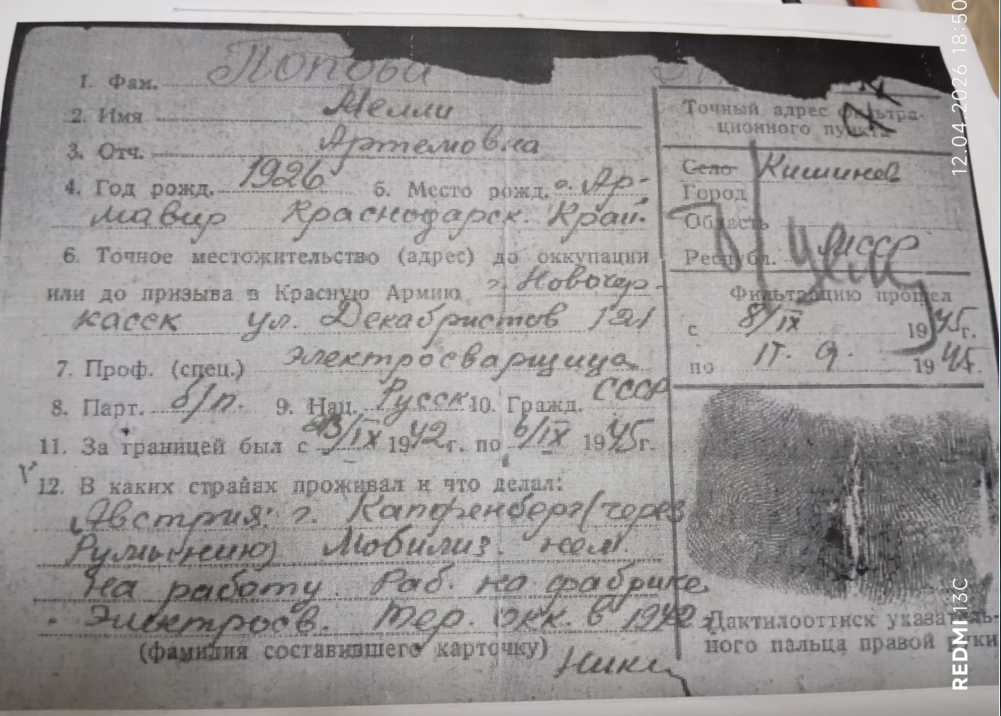 1. Фам. Попова
2. Имя Мелли
3. Отч. Артемовна
4. Год рожд. 1926 5. Место рожд. г. Ар-
мавир Краснодарск. Край.
6. Точное местожительство (адрес) до оккупации
или до призыва в Красную Армию г. Новочер-
касск ул. Декабристов 121
7. Проф. (спец.) электросварщица
8. Парт. б/п. 9. Нац. Русск 10. Гражд. СССР
11. За границей был с 13/IX 1942 г. по 6/IX 1945 г.
12. В каких странах проживал и что делал:
Австрия: г. Капфенберг (через
Румынию) Мобилиз. нем.
на работу. Раб. на фабрике
Электросв. Тер. окк. в 1942
(фамилия составившего карточку)
Точный адрес фильтра-
ционного пункта
Село Кишинев
Город
Область
Республ. МССР
Фильтрацию прошел
с 8/IX 1945 г.
по 1945 г.
Дактилооттиск указатель-
ного пальца правой руки
12.04.2026 18:50
REDMI 13C